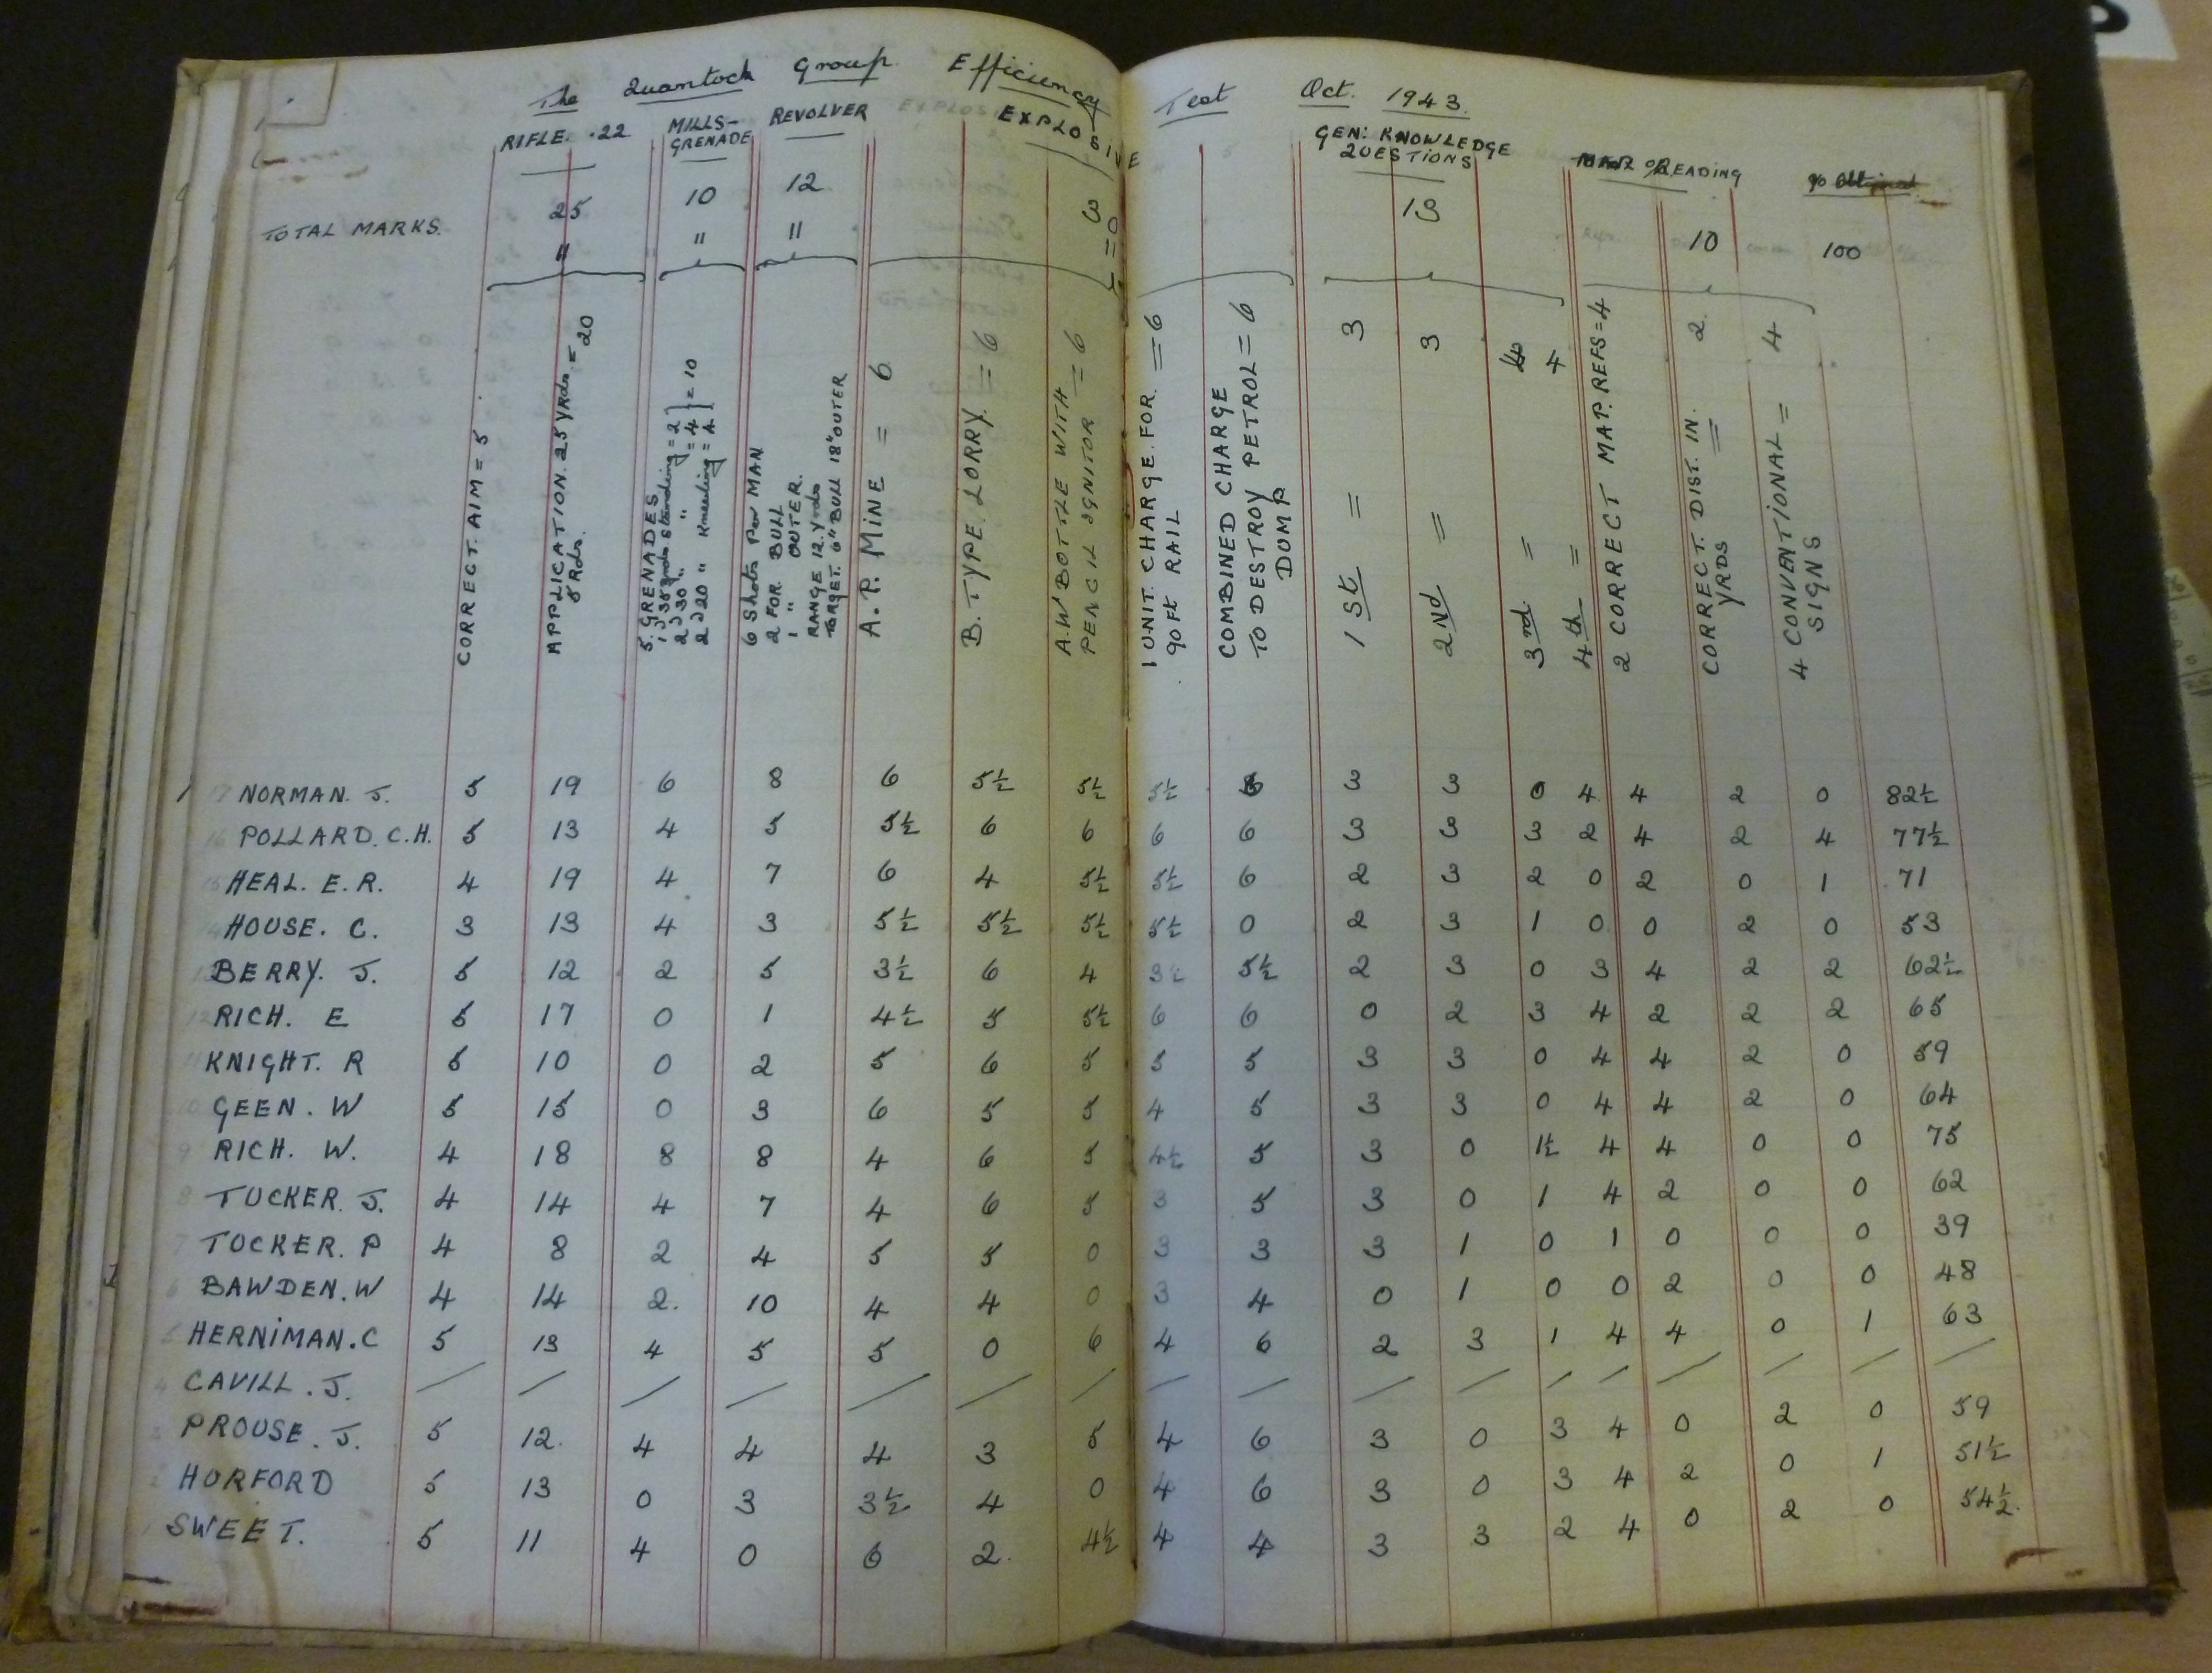 The Quantock Group Efficiency Test Oct. 1943.
RIFLE. .22 MILLS-GRENADE REVOLVER EXPLOSIVE GEN: KNOWLEDGE QUESTIONS MAP READING
TOTAL MARKS. 25 10 12 30 13 10 100
" " " "
CORRECT. AIM = 5
APPLICATION. 25 YRds. = 20
5 Rds.
5. GRENADES
1) 35 yrds standing = 2
2) 30 " " = 4
2) 20 " Kneeling = 4
= 10
6 Shots Per MAN
2 FOR BULL
1 " OUTER.
RANGE 12. Yrds
TARGET. 6" BULL 18" OUTER
A.P. MINE = 6
B. TYPE. LORRY. = 6
A.W BOTTLE WITH
PENCIL IGNITOR = 6
1 UNIT. CHARGE. FOR. = 6
90 Ft RAIL
COMBINED CHARGE
TO DESTROY PETROL = 6
DUMP
1st = 3
2Nd = 3
3rd =
4th = 4
2 CORRECT MAP. REFS = 4
CORRECT. DIST. IN. = 2
YRDS
4 CONVENTIONAL = 4
SIGNS
1 17 NORMAN. J. 5 19 6 8 6 5½ 5½ 5½ 6 3 3 0 4 4 2 0 82½
16 POLLARD. C.H. 5 13 4 5 5½ 6 6 6 6 3 3 3 2 4 2 4 77½
15 HEAL. E. R. 4 19 4 7 6 4 5½ 5½ 6 2 3 2 0 2 0 1 71
14 HOUSE. C. 3 13 4 3 5½ 5½ 5½ 5½ 0 2 3 1 0 0 2 0 53
13 BERRY. J. 5 12 2 5 3½ 6 4 3½ 5½ 2 3 0 3 4 2 2 62½
12 RICH. E 5 17 0 1 4½ 5 5½ 6 6 0 2 3 4 2 2 2 65
11 KNIGHT. R 5 10 0 2 5 6 5 5 5 3 3 0 4 4 2 0 59
10 GEEN. W 5 15 0 3 6 5 5 4 5 3 3 0 4 4 2 0 64
9 RICH. W. 4 18 8 8 4 6 5 4½ 5 3 0 1½ 4 4 0 0 75
8 TUCKER. J. 4 14 4 7 4 6 5 3 5 3 0 1 4 2 0 0 62
7 TUCKER. P 4 8 2 4 5 5 0 3 3 3 1 0 1 0 0 0 39
6 BAWDEN. W 4 14 2. 10 4 4 0 3 4 0 1 0 0 2 0 0 48
5 HERNIMAN. C 5 13 4 5 5 0 6 4 6 2 3 1 4 4 0 1 63
4 CAVILL. J. / / / / / / / / / / / / / / / / /
3 PROUSE. J. 5 12. 4 4 4 3 5 4 6 3 0 3 4 0 2 0 59
2 HURFORD 5 13 0 3 3½ 4 0 4 6 3 0 3 4 2 0 1 51½
1 SWEET. 5 11 4 0 6 2. 4½ 4 4 3 3 2 4 0 2 0 54½.